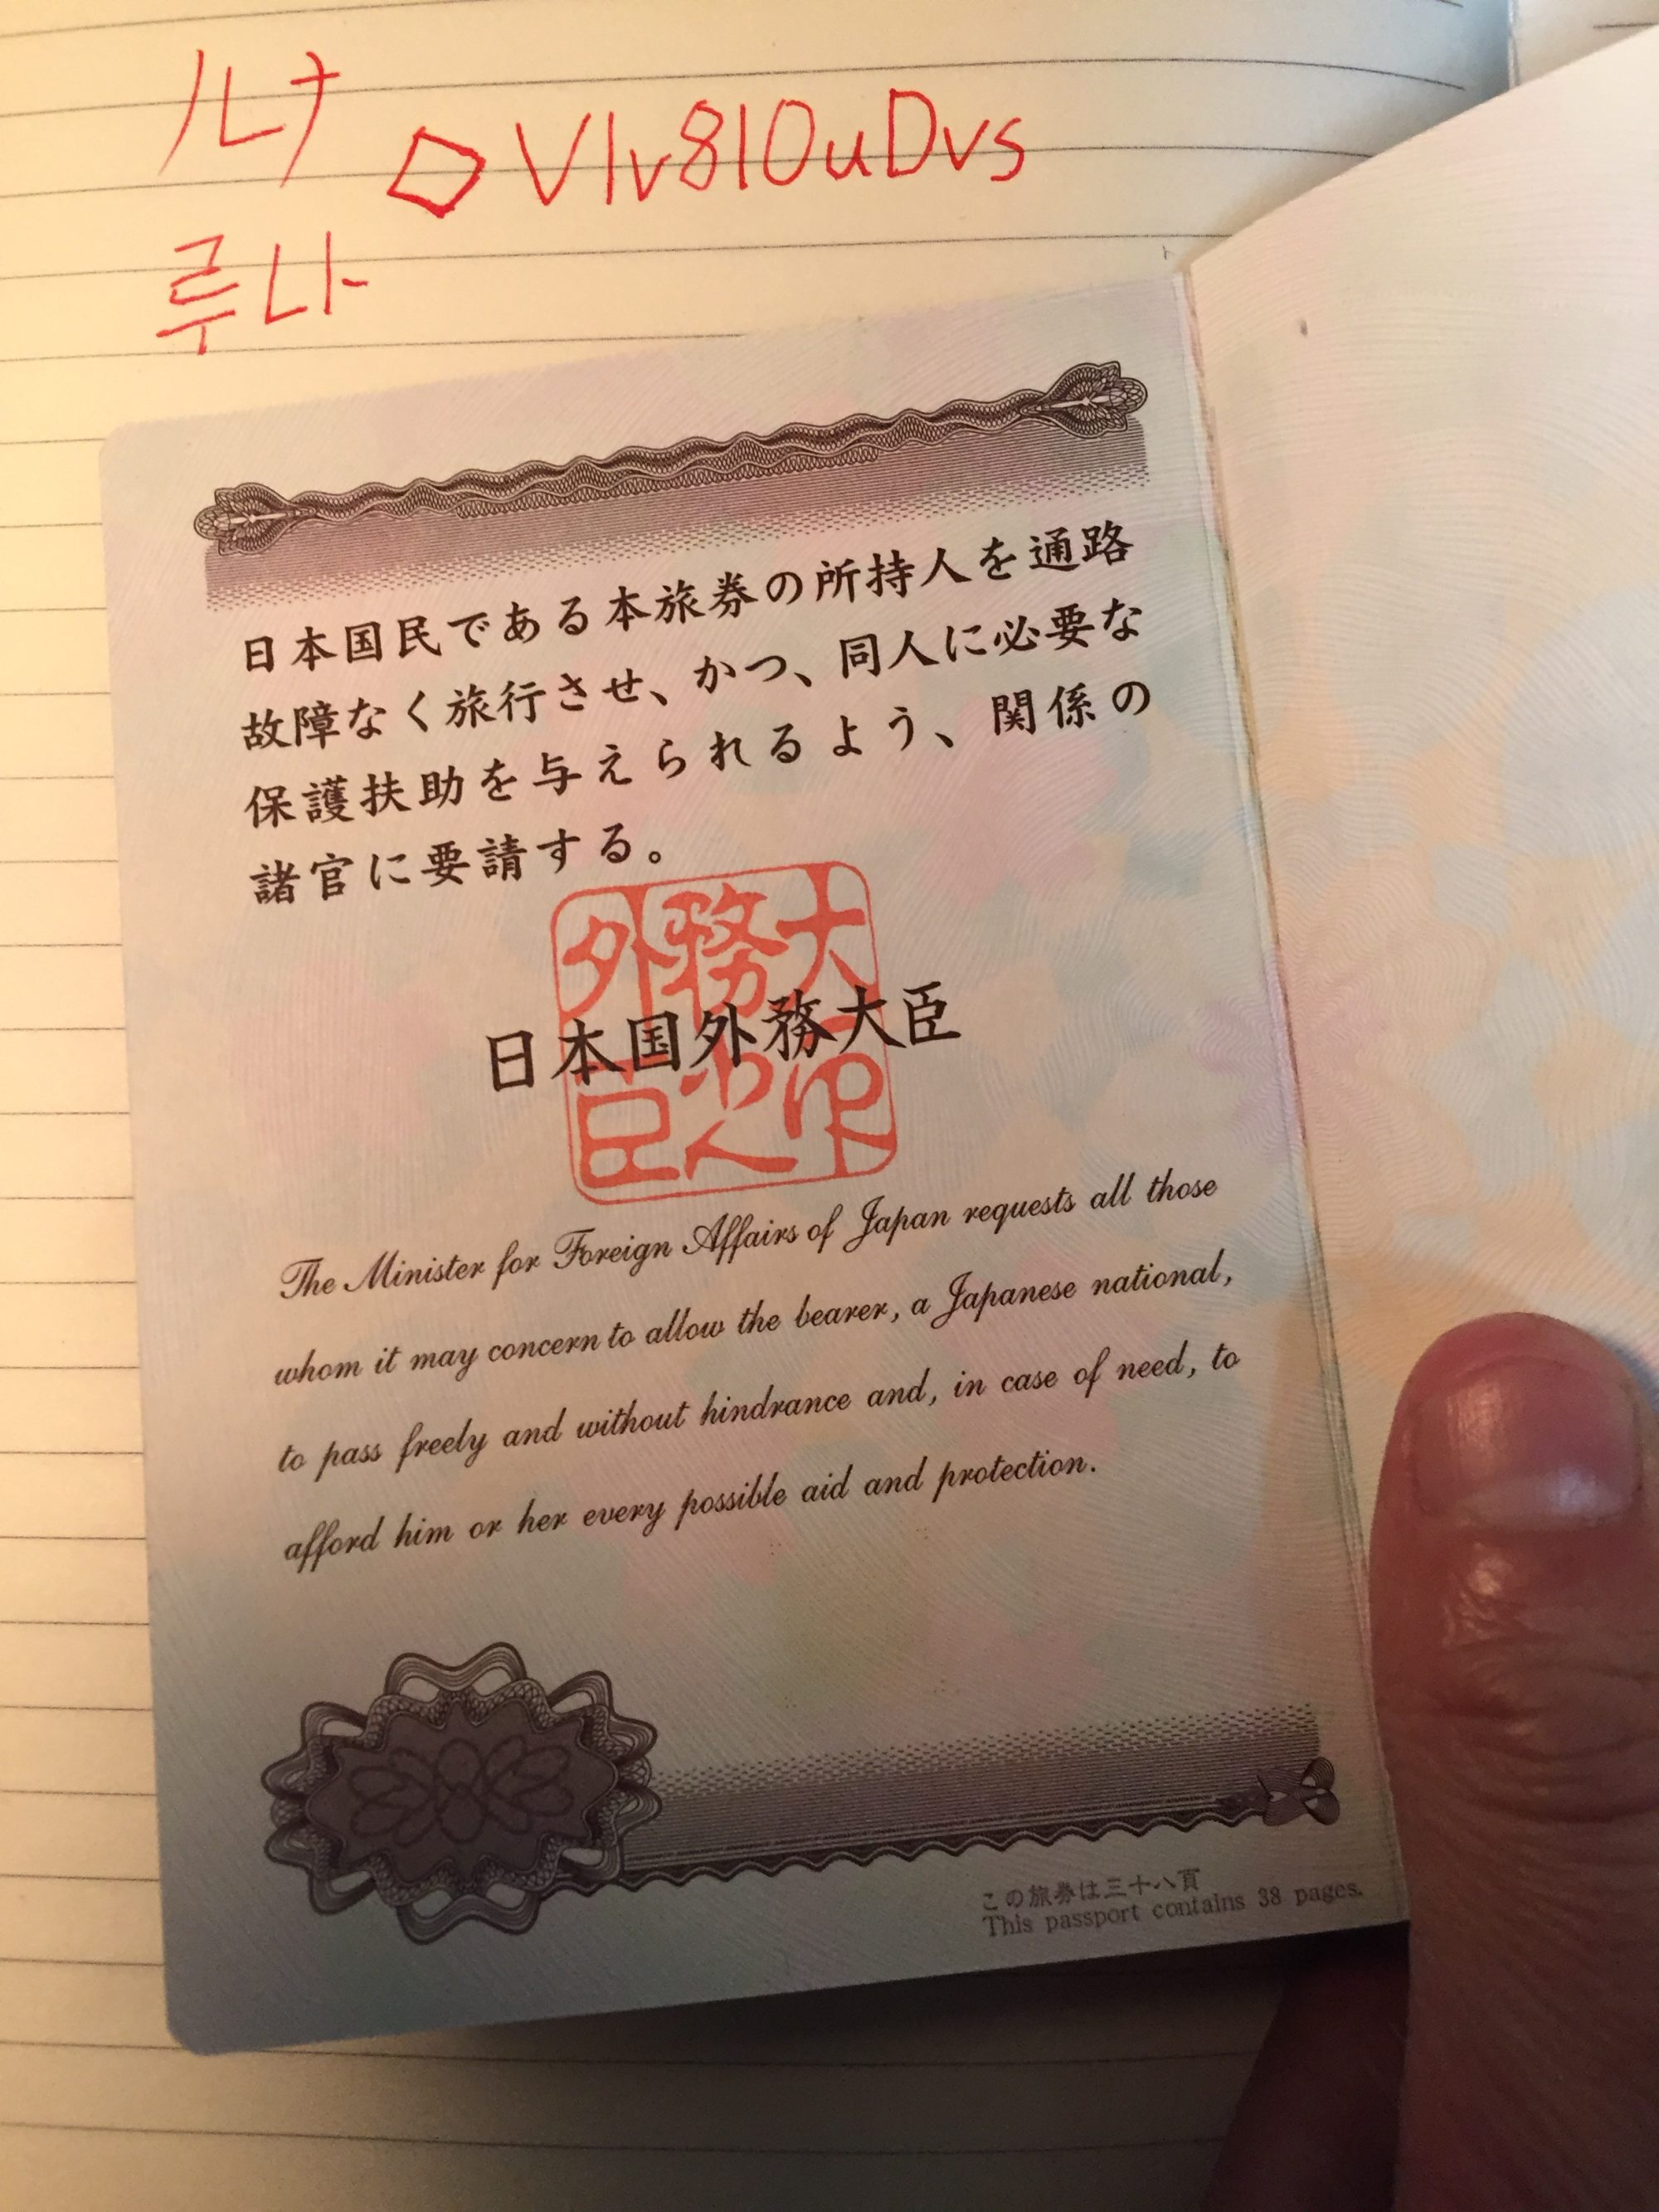 ルナ ◇VIv8I0uDvs
루나
日本国民である本旅券の所持人を通路
故障なく旅行させ、かつ、同人に必要な
保護扶助を与えられるよう、関係の
諸官に要請する。
日本国外務大臣
The Minister for Foreign Affairs of Japan requests all those
whom it may concern to allow the bearer, a Japanese national,
to pass freely and without hindrance and, in case of need, to
afford him or her every possible aid and protection.
この旅券は三十八頁
This passport contains 38 pages.